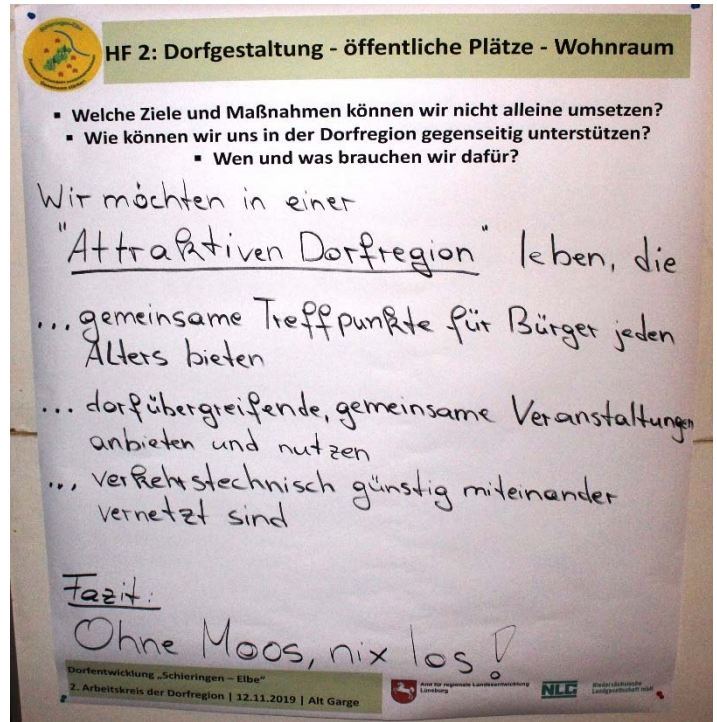 HF 2: Dorfgestaltung - öffentliche Plätze - Wohnraum
▪ Welche Ziele und Maßnahmen können wir nicht alleine umsetzen?
▪ Wie können wir uns in der Dorfregion gegenseitig unterstützen?
▪ Wen und was brauchen wir dafür?
Wir möchten in einer
"Attraktiven Dorfregion" leben, die
... gemeinsame Treffpunkte für Bürger jeden
Alters bieten
... dorfübergreifende, gemeinsame Veranstaltungen
anbieten und nutzen
... verkehrstechnisch günstig miteinander
vernetzt sind
Fazit:
Ohne Moos, nix los!
Dorfentwicklung „Schieringen – Elbe"
2. Arbeitskreis der Dorfregion | 12.11.2019 | Alt Garge
Amt für regionale Landesentwicklung
Lüneburg
NLG
Niedersächsische
Landgesellschaft mbH